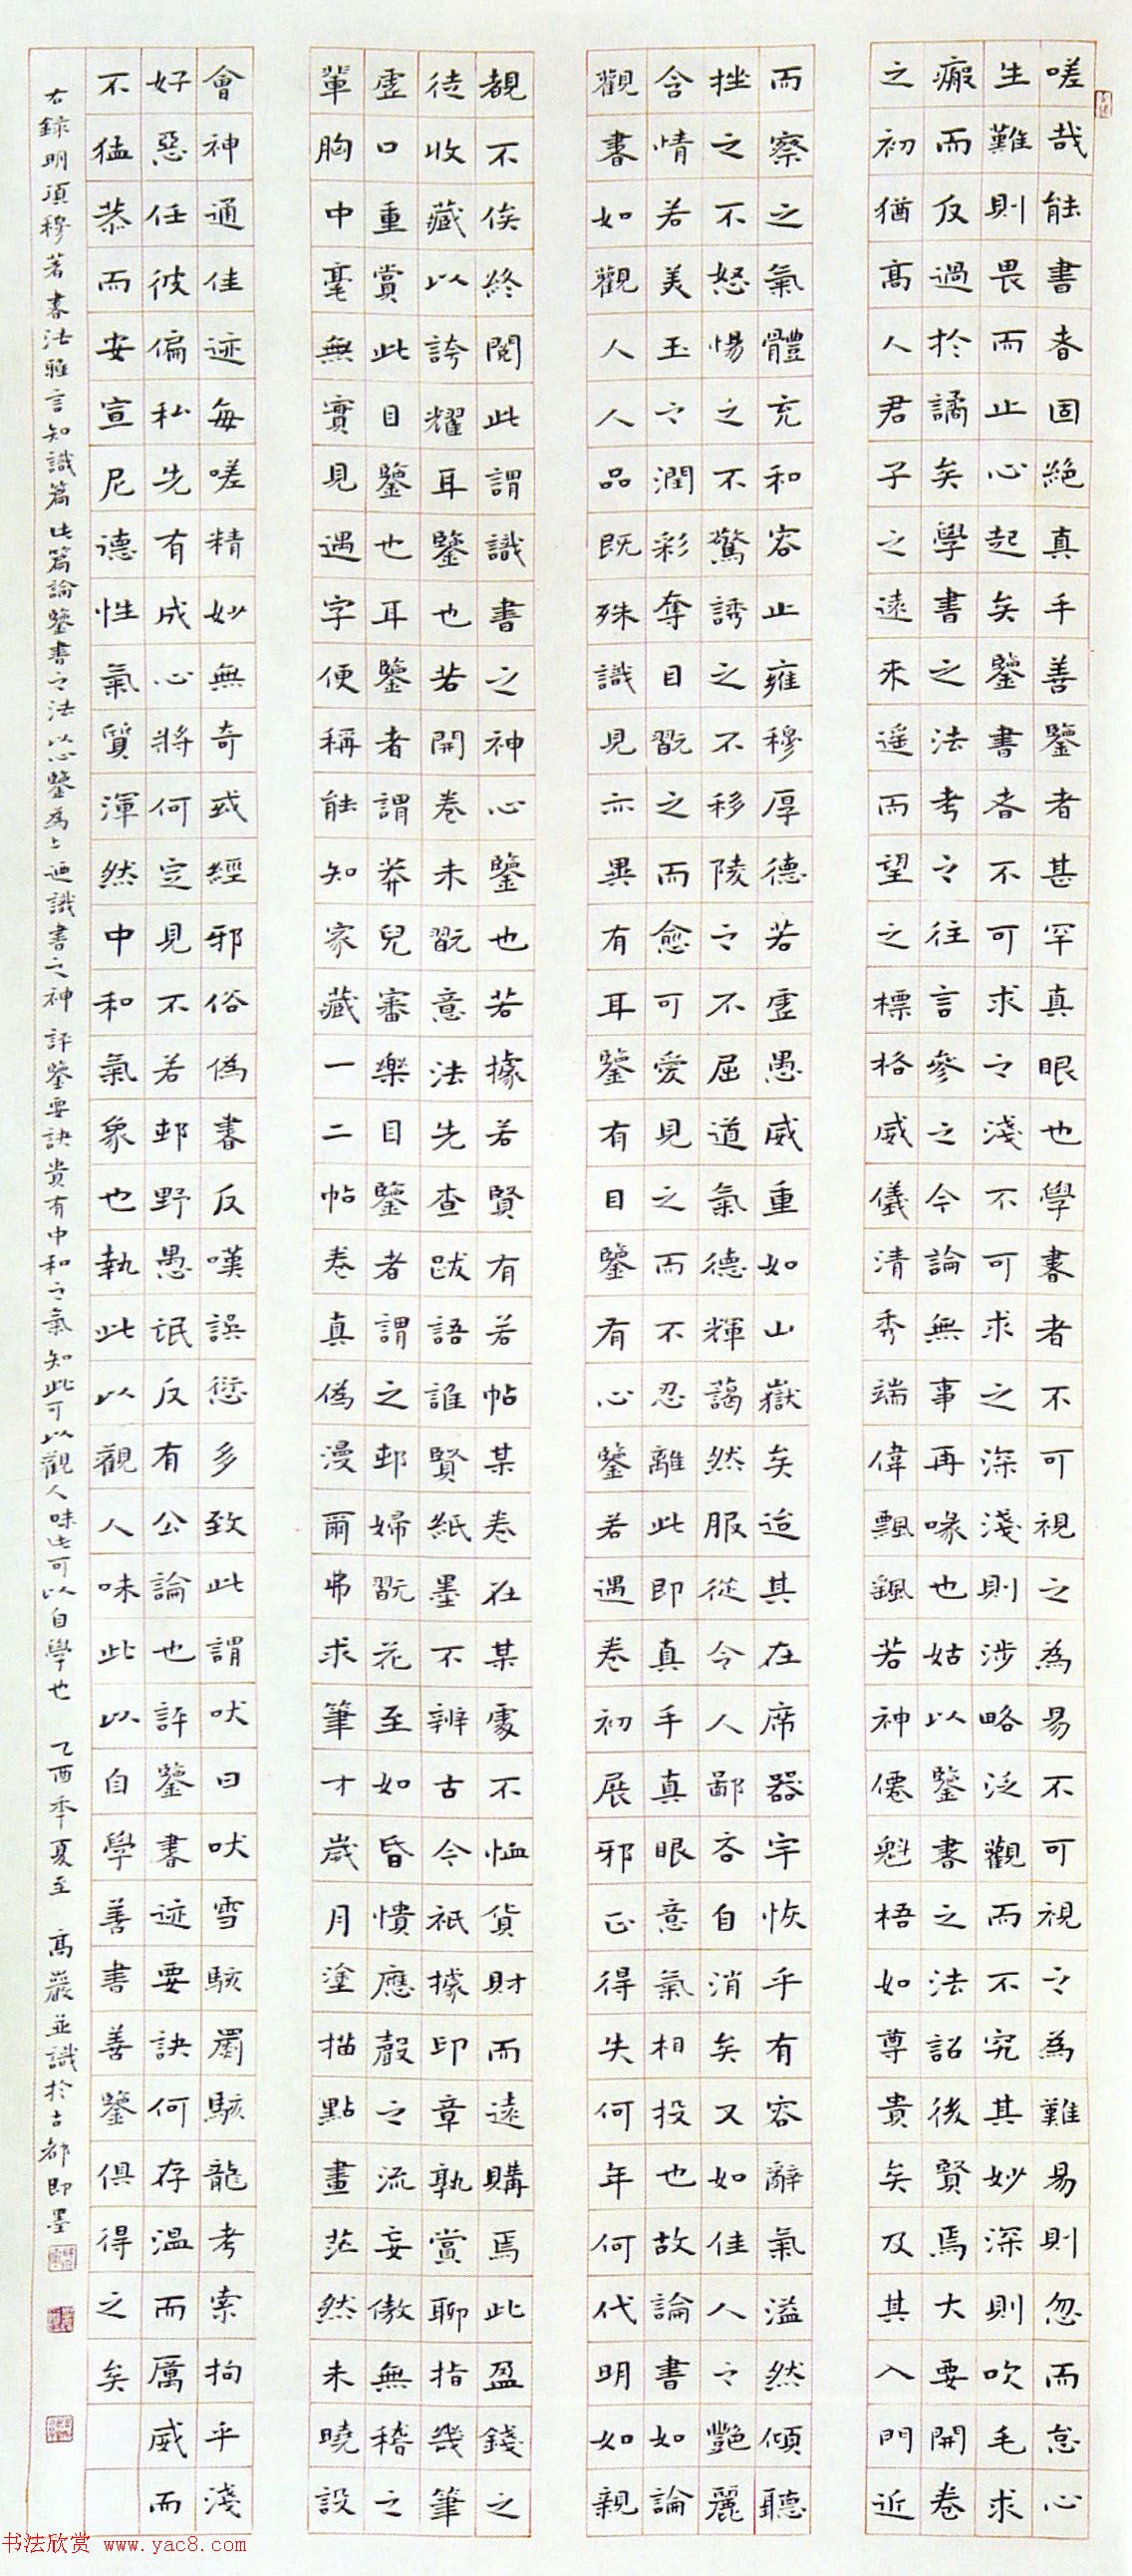 嗟哉能書者固絕真手善鑒者甚罕真眼也學書者不可視之為易不可視之為難易則忽而怠心
生難則畏而止心起矣鑒書者不可求之淺不可求之深淺則涉略泛觀而不究其妙深則吹毛求
瘢而反過於譎矣學書之法考之往言參之今論無事再喙也姑以鑒書之法詔後賢焉大要開卷
之初猶高人君子之遠來遥而望之標格威儀清秀端偉飄颻若神僊魁梧如尊貴矣及其入門近
而察之氣體充和容止雍穆厚德若虛愚威重如山嶽矣迨其在席器宇恢乎有容辭氣溢然傾聽
挫之不怒惕之不驚誘之不移陵之不屈道氣德輝藹然服從令人鄙吝自消矣又如佳人之艷麗
含情若美玉之潤彩奪目翫之而愈可愛見之而不忍離此即真手真眼意氣相投也故論書如論
觀書如觀人人品既殊識見亦異有耳鑒有目鑒有心鑒若遇卷初展邪正得失何年何代明如親
覩不俟終閱此謂識書之神心鑒也若據若賢有若帖某卷在某處不恤貨財而遠購焉此盈錢之
徒收藏以誇耀耳鑒也若開卷未翫意法先查跋語誰賢紙墨不辨古今祇據印章孰賞聊指幾筆
虛口重賞此目鑒也耳鑒者謂莽兒審樂目鑒者謂之邨婦翫花至如昏憒應聲之流妄傲無稽之
輩胸中毫無實見遇字便稱能知家藏一二帖卷真偽漫爾弗求筆才歲月塗描點畫茫然未曉設
會神通佳迹每嗟精妙無奇或經邪俗偽書反嘆誤愆多致此謂吠日吠雪駭罽駭龍考索拘乎淺
好惡任彼偏私先有成心將何定見不若邨野愚氓反有公論也評鑒書迹要訣何存溫而厲威而
不猛恭而安宣尼德性氣質渾然中和氣象也執此以觀人味此以自學善書善鑒俱得之矣
右錄明項穆著書法雅言知識篇此篇論鑒書之法以心鑒為上迺識書之神評鑒要訣貴有中和之氣知此可以觀人味此可以自學也 乙酉年夏至 高嚴並識於古都即墨
书法欣赏 www.yac8.com